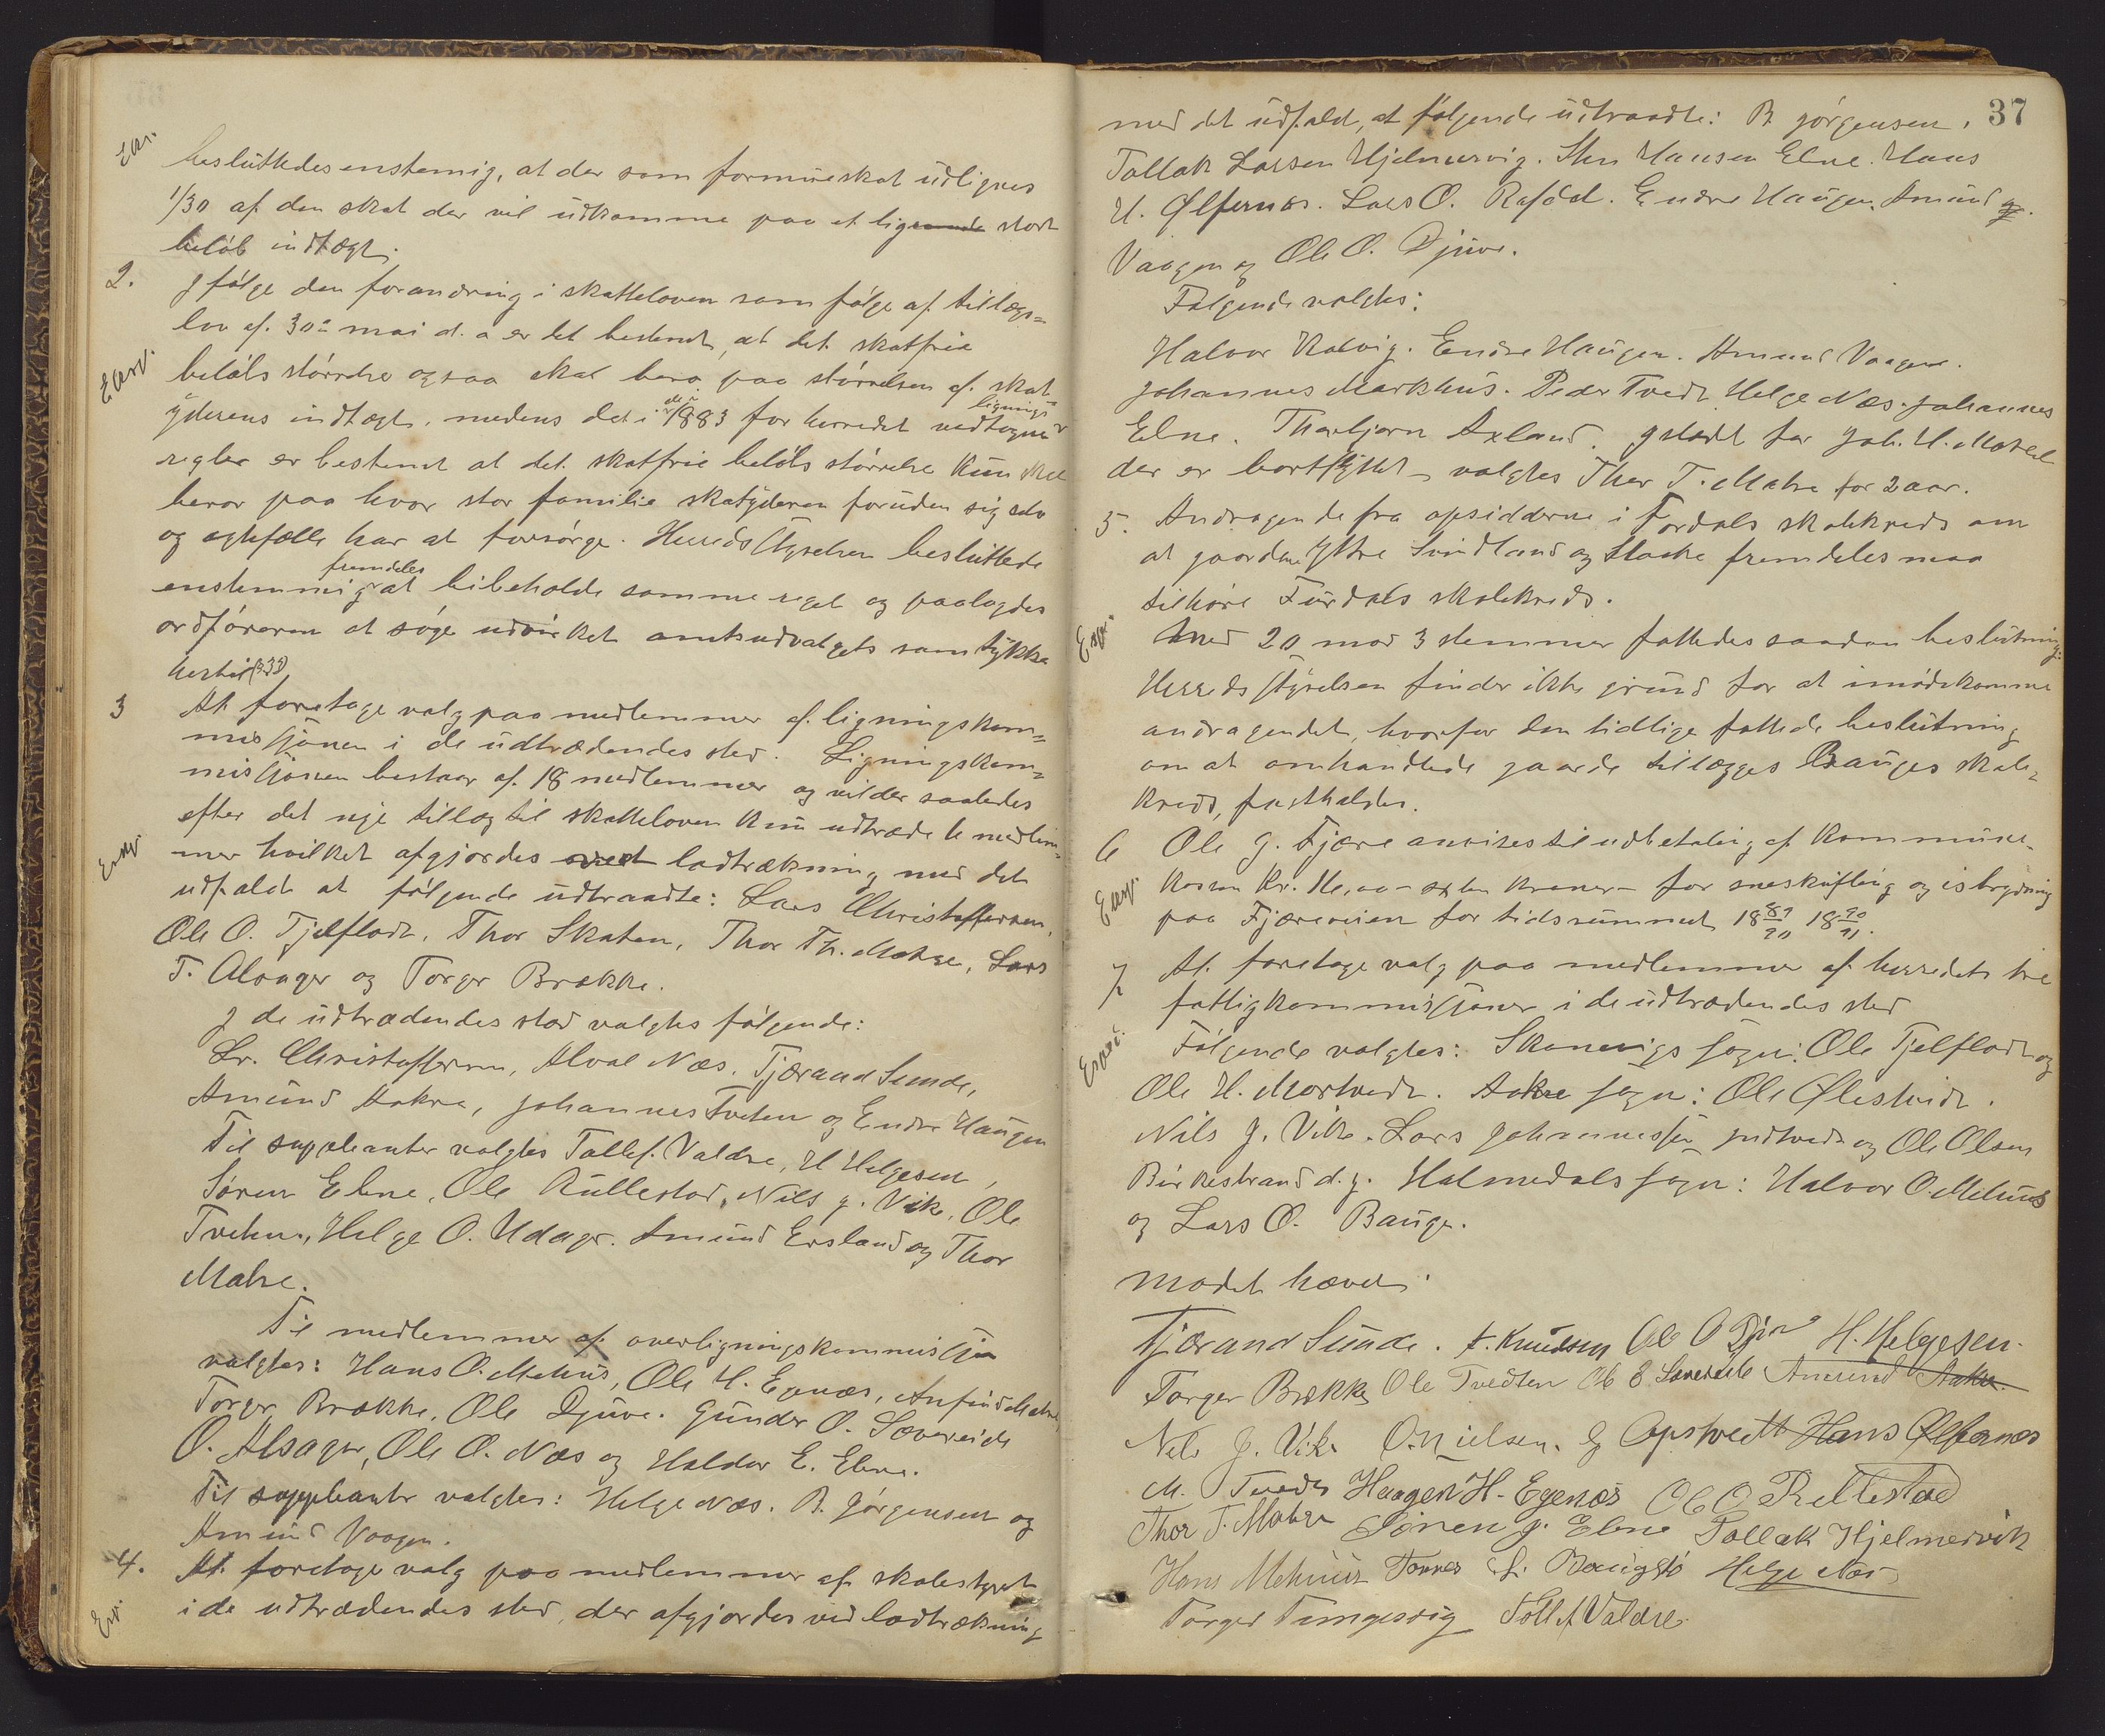 Exv.
besluttedes enstemig, at der som formueskat udlignes
1/30 af den skat der vil udkomme paa et lige stort
beløb indtægt.
2. Ifølge den forandring i skatteloven som følge af tillægs=
lov af 30te mai d. a er det bestemt, at det skatfrie
Exv.
beløbs størrelse ogsaa skal bero paa størrelsen af skat=
yderens indtægt, medens det i de i 1883 for herredet vedtagne lignings
regler er bestemt at det skatfrie beløbs størrelse kun skal
beror paa hvor stor familie skatyderen foruden sig selv
og egtefælle har at forsørge. Herredsstyrelsen besluttede
enstemmig fremdeles at bibeholde samme regel og paalagdes
ordføreren at søge udvirket amtsudvalgets samtykke
hertil (§ 33)
3 At foretage valg paa medlemmer af ligningskom=
missjonen i de udtrædendes sted. Ligningskom=
missjonen bestaar af 18 medlemmer og vil der saaledes
efter det nye tillæg til skatteloven kun udtræde 6 medlem=
Exv.
mer hvilket afgjordes ved lodtrækning med det
udfald at følgende udtraadte: Lars Christoffersen,
Ole O. Tjelflodt, Thor Skaten, Thor Th. Matre, Lars
T. Alsager og Torger Brække.
I de udtrædendes sted valgtes følgende:
Lr. Christoffersen, Alval Næs. Tjærand Sunde,
Amund Aakra, Johannes Tveten og Endre Haugen
Til suppleanter valgtes Tollef. Valdre, H Helgesen,
Søren Ebne, Ole Rullestad, Nils J. Vik, Ole
Tveten, Helge O. Udager. Amund Ersland og Thor
Matre.
Til medlemmer af overligningskommissjon
valgtes: Hans O. Mehus, Ole H. Egenæs, Anfind Matre
Torger Brække, Ole Djuve. Gunder O. Sævereide
O. Alsager, Ole O. Næs og Haldor E. Ebne.
Til suppleanter valgtes: Helge Næs. B. Jørgensen og
Amund Vaagen.
4. At foretage valg paa medlemmer af skolestyret
Exv.
i de udtrædendes sted, der afgjordes ved lodtrækning
37
med det udfald, at følgende udtraadte: B Jørgensen,
Tollak Larsen Hjelmervig. Hansen Ebne. Hans
H. Ølfernæs. Lars O. Raføel. Endre Haugen, Amund og
Vaagen og Ole O. Djuve.
Følgende valgtes:
Halvor Kalvig. Endre Haugen. Amund Vaagen.
Johannes Markhus. Peder Tvedt Helge Næs. Johannes
Ebne. Thorbjørn Axland. Istedet for Joh. H. Matre
der er bortflyttet valgtes Thor T. Matre for 2 aar.
5. Andragende fra opsidderne i Fordals skolekreds om
at gaardene Ytre Svindland og Stacke fremdeles maa
tilhøre Furdals skolekreds.
Exv.
Med 20 mod 3 stemmer fattedes saadan beslutning:
Herredsstyrelsen finder ikke grund for at imødekomme
andragendet, hvorfor den tidlige fattede beslutning
om at omhandlede gaarde tillægges Bauges skole=
kreds, fastholdes.
6 Ole J. Fjære anvises til udbetaling af kommune-
Exv.
kassen Kr. 16,00 - sexten kroner - for sneskufling og isbrydning
paa Fjæreveien for tidsrummet 18 89/90 18 90/91.
7 At foretage valg paa medlemmer af herredets tre
fattigkommissjoner i de udtrædendes sted
Følgende valgtes: Skonevigs sogn: Ole Tjelflodt og
Ole H. Mortvedt. Aakre sogn: Ole Ølestvedt.
Nils J. Vike. Lars Johannessen Indtvedt og Ole Olsen
Birkestrand d. y. Halmedals sogn: Halvor O. Mehus
og Lars O. Bauge.
Mødet hævet.
Tjærand Sunde. T. Knudsen Ole O Djuve H. Helgesen.
Torger Brække Ole Tvedten Ole E Sævereide Amund Aakre.
Nils J. Vik O. Nielsen. G Opstvedt Hans Ølfernæs
M. Tvedt Haagen H. Egenæs Ole O Rullestad
Thor T. Matre Sønen J. Ebne Tollak Hjelmervik
Hans Mehus Tønnes L. Baugstø Helge Næs
Torger Tungesvig Tollef Valdre